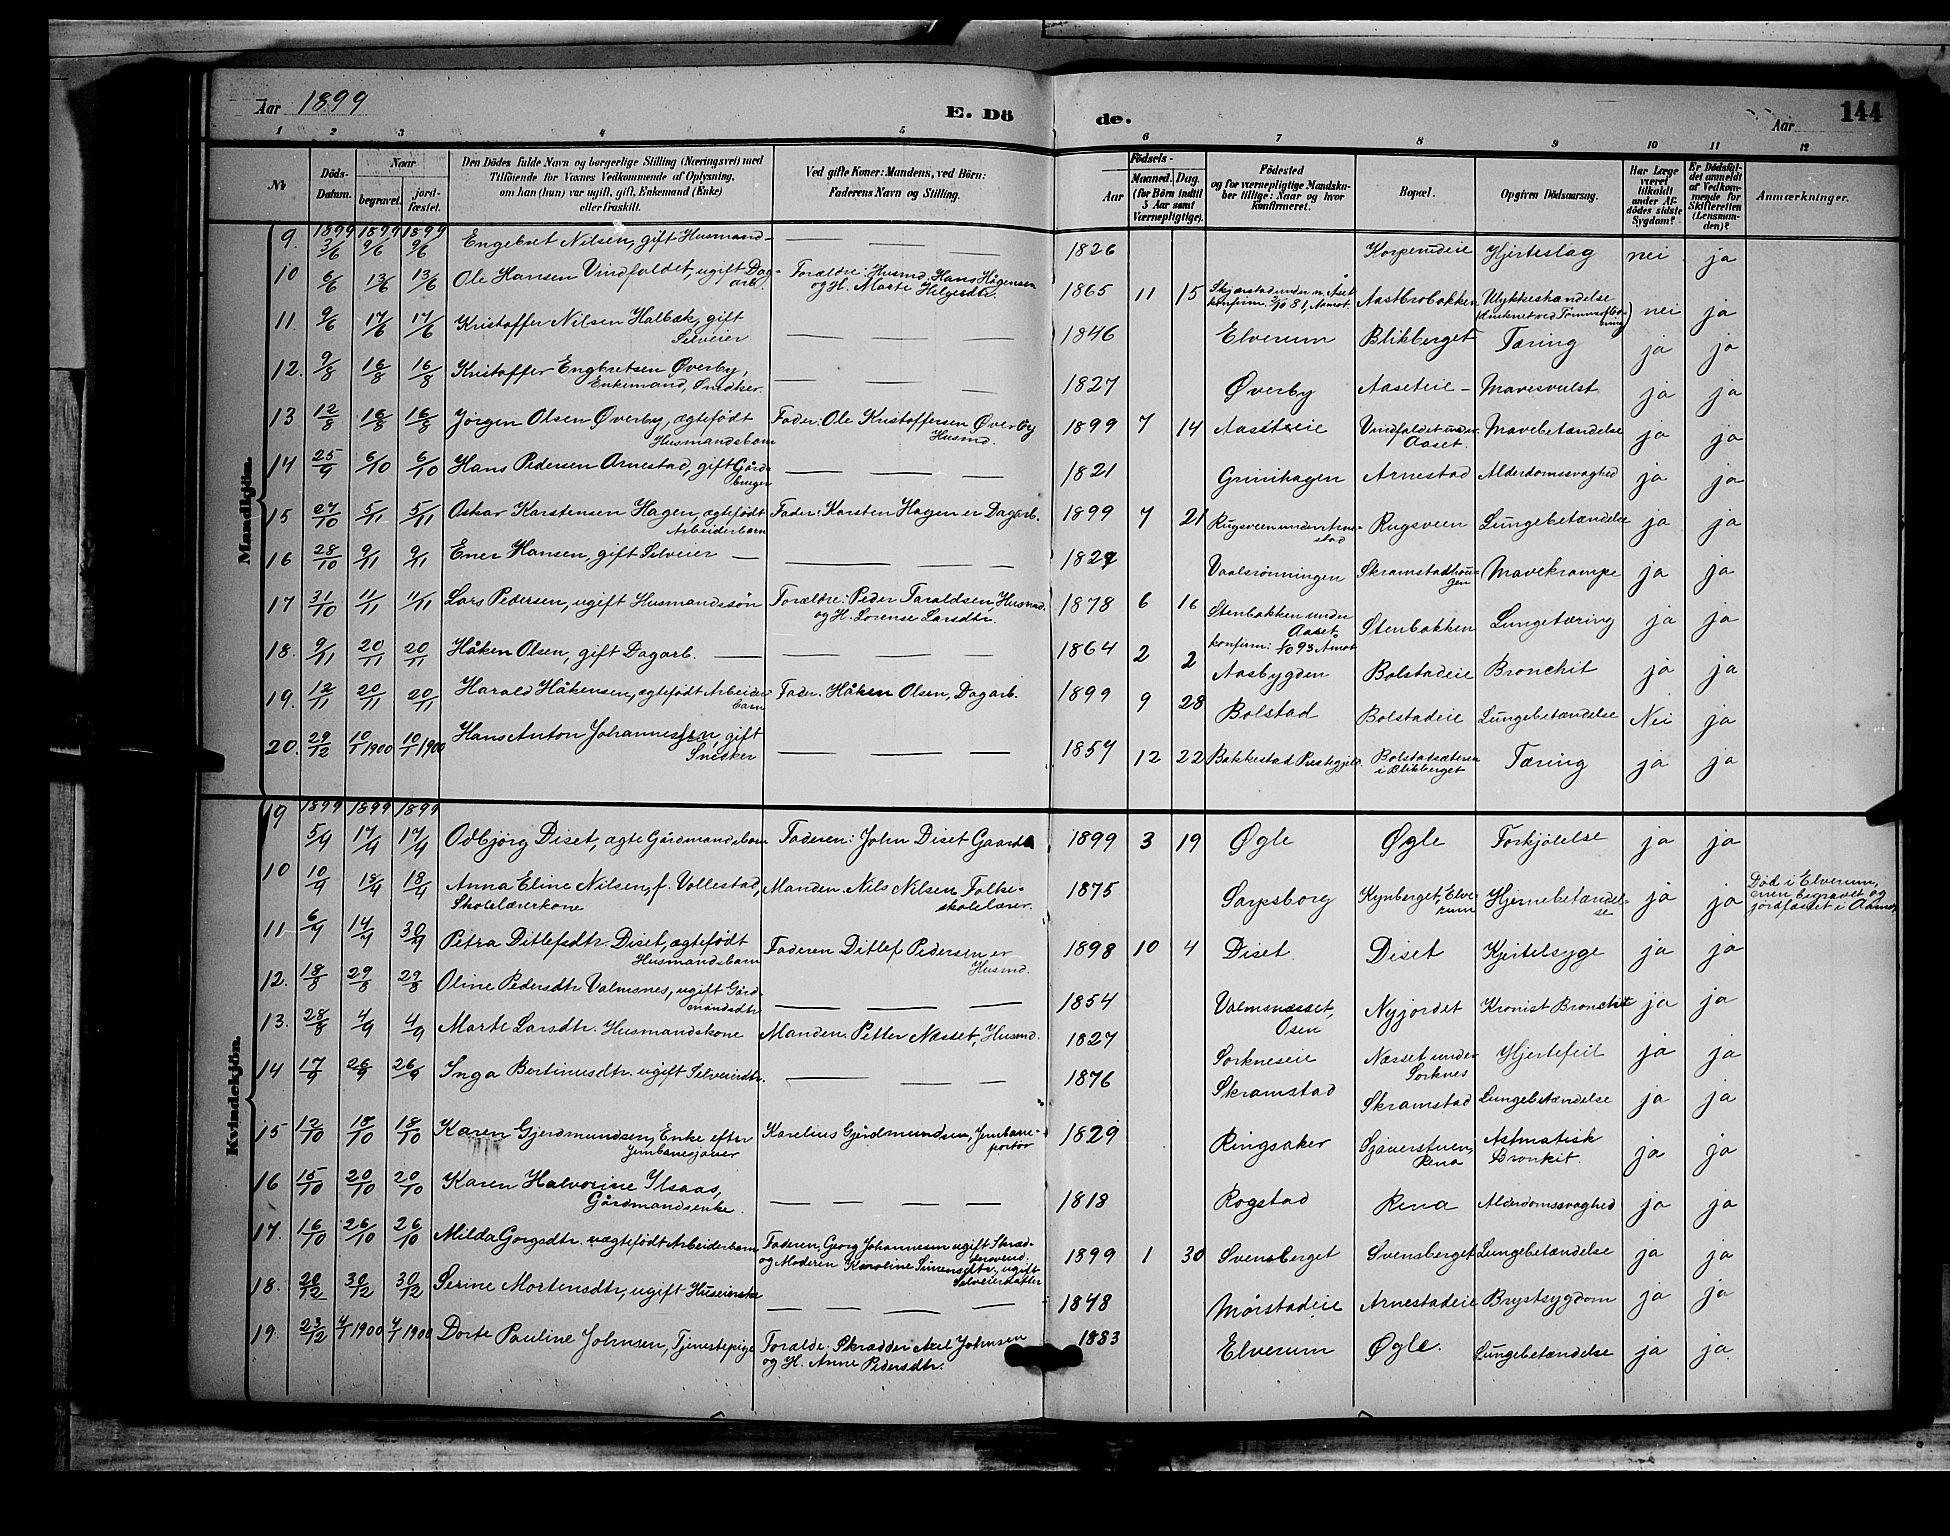 Aar 1899
E. Dö de.
Aar 144
1 2 3 4 5 6 7 8 9 10 11 12
No
Döds-Datum.
Naar begravet. jord-fæstet.
Den Dödes fulde Navn og borgerlige Stilling (Næringsvei) med
Tilföiende for Voxnes Vedkommende af Oplysning,
om han (hun) var ugift, gift, Enkemand (Enke)
eller fraskilt.
Ved gifte Koner: Mandens, ved Börn:
Faderens Navn og Stilling.
Födsels-
Aar Maaned. Dag.
(for Börn indtil 5 Aar samt Værnepligtige).
Födested
og for værnepligtige Mandska-
ber tillige: Naar og hvor
konfirmeret.
Bopæl.
Opgiven Dödsaarsag.
Har Læge været tilkaldt under Af-dödes sidste Sygdom?
Er Dödsfal-det anmeldt af Vedkom-mende for Skifteretten (Lensman-den)?
Anmærkninger.
Mandkjön.
1899 1899 1899
9. 3/6 9/6 9/6 Engebret Nilsen, gift Husmand — — — 1826 Korpereie Hjerteslag nei ja
10 6/6 13/6 13/6 Ole Hansen Vindfaldet, ugift Dag-arb. Forældre: Husmd. Hans Hågensen og H. Marte Helgesdtr. 1865 11 15 konfirm. 81, Aamot Aastbrobakken Ulykkeshændelse nei ja
11. 9/6 17/6 17/6 Kristoffer Nilsen Halbæk, gift Selveier — — — 1846 Elverum Blikberget Tæring ja ja
12. 9/8 16/8 16/8 Kristoffer Engbretsen Øverby, Enkemand, Snedker. — — — 1827 Øverby Aaseteie Mavesvulst ja ja
13 12/8 16/8 16/8 Jörgen Olsen Øverby, ægtefödt Husmandsbarn Fader: Ole Kristoffersen Øverby Husmd. 1899 7 14 Aaseteie Vindfaldet under Aaset Mavebetændelse ja ja
14 25/9 6/10 6/10 Hans Pedersen Arnestad, gift Gård-bruger — — — 1821 Grinihagen Arnestad Alderdomssvaghed ja ja
15 27/10 5/11 5/11 Oskar Karstensen Hagen, ægtefödt Arbeiderbarn Fader: Karsten Hagen er Dagarb. 1899 7 21 Rugsveen under Arne-stad Rugsveen Lungebetændelse ja ja
16 28/10 9/11 9/11 Ener Hansen, gift Selveier — — — — Vaalsrönningen Skramstadhau-gen Mavekrampe ja ja
17 31/10 11/11 11/11 Lars Pedersen, ugift Husmandssön Forældre: Peder Taraldsen, Husmd. og H. Lorense Larsdtr. 1878 6 16 Stenbakken under Aaset konfirm: 93 Amot Stenbakken Lungetæring ja ja
18. 9/11 20/11 20/11 Håken Olsen, gift Dagarb. — — — 1864 2 2 Aasbygden Bolstadeie Bronchit ja ja
19. 12/11 20/11 20/11 Harald Håkensen, ægtefödt Arbeider-barn Fader: Håken Olsen, Dagarb. 1899 9 28 Bolstad Bolstadeie Lungebetændelse Nei ja
20. 29/12 10/1 1900 10/1 1900 Hans Anton Johannesen, gift Snedker — — — 1857 12 22 Bakkestad Prestegjeld. Bolstadsæteren i Blikberget Tæring ja ja
Kvindekjön.
1899 1899 1899
9 5/4 17/4 17/4 Odbjörg Diset, ægte Gårdmandsbarn Faderen: John Diset Gaardb 1899 3 19 Øgle Øgle Forkjölelse ja ja
10 10/4 18/4 18/4 Anna Eline Nilsen, f. Vollestad, Skolelærerkone Manden: Nils Nilsen Folke-skolelærer. 1875 Sarpsborg Kynberget, Elve-rum Hjernebetændel-se ja ja Död i Elverum, men begravet og jordfæstet i Aamot
11 6/4 14/4 30/4 Petra Ditlefsdtr. Diset, ægtefödt Husmandsbarn Faderen Ditlef Pedersen er Husmd. 1898 10 4 Diset Diset Kjertelsyge ja ja
12. 18/8 29/8 29/8 Oline Pedersdtr Valmsnes, ugift Gård-mandsdtr — — — 1854 Valmsnæsset, Osen Nyjordet Kronist Bronchit ja ja
13. 28/8 4/9 4/9 Marte Larsdtr. Husmandskone Manden: Petter Næsset, Husmd. 1827 Sorkneseie Næsset under Sorknes Hjertefeil ja ja
14 17/9 26/9 26/9 Inga Bertinusdtr. ugift Selveierdtr. — — — 1876 Skramstad Skramstad Lungebetændelse ja ja
15 12/10 18/10 18/10 Karen Gjerdmundsen, Enke efter Jernbanesjauer Karelius Gjerdmundsen, Jernbane-portör 1829 Ringsaker Sjauerstuen, Rena Astmatisk Bronkit. ja ja
16 15/10 20/10 20/10 Karen Halvorine Ilsaas, Gårdmandsenke. — — — — 1818 Rogstad Rena Alderdomssvaghed ja ja
17. 16/10 26/10 26/10 Milda Gorgsdtr. uægtefödt Arbeiderbarn Faderen, Georg Johannesen ugift Skræd-dersvend, og Moderen Karoline Simensdtr., ugift Selveierdatter 1899 1 30 Svensberget Svensberget Lungebetændelse ja ja
18. 20/12 30/12 30/12 Serine Mortensdtr, ugift Huseierske — — — — 1848 Mörstadeie Arnestadeie Brystsygdom ja ja
19. 23/12 4/1 1900 4/1 1900 Dorte Pauline Johnsen, Tjenestepige Foræld: Skrædder Axel Johnsen og H. Anne Pedersdtr. 1883 Elverum Øgle. Lungebetændelse ja ja